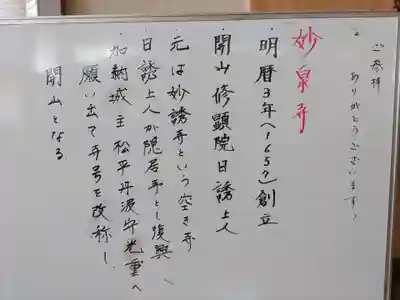 ご参拝
ありがとうございます♪
妙泉寺
・明暦3年(1657)創立
・開山修顕院日誘上人
・元は妙誘寺という空き寺
日誘上人が隠居寺とし復興、
加納城主松平丹波守光重へ
願い出て寺号を改称し、
開山となる